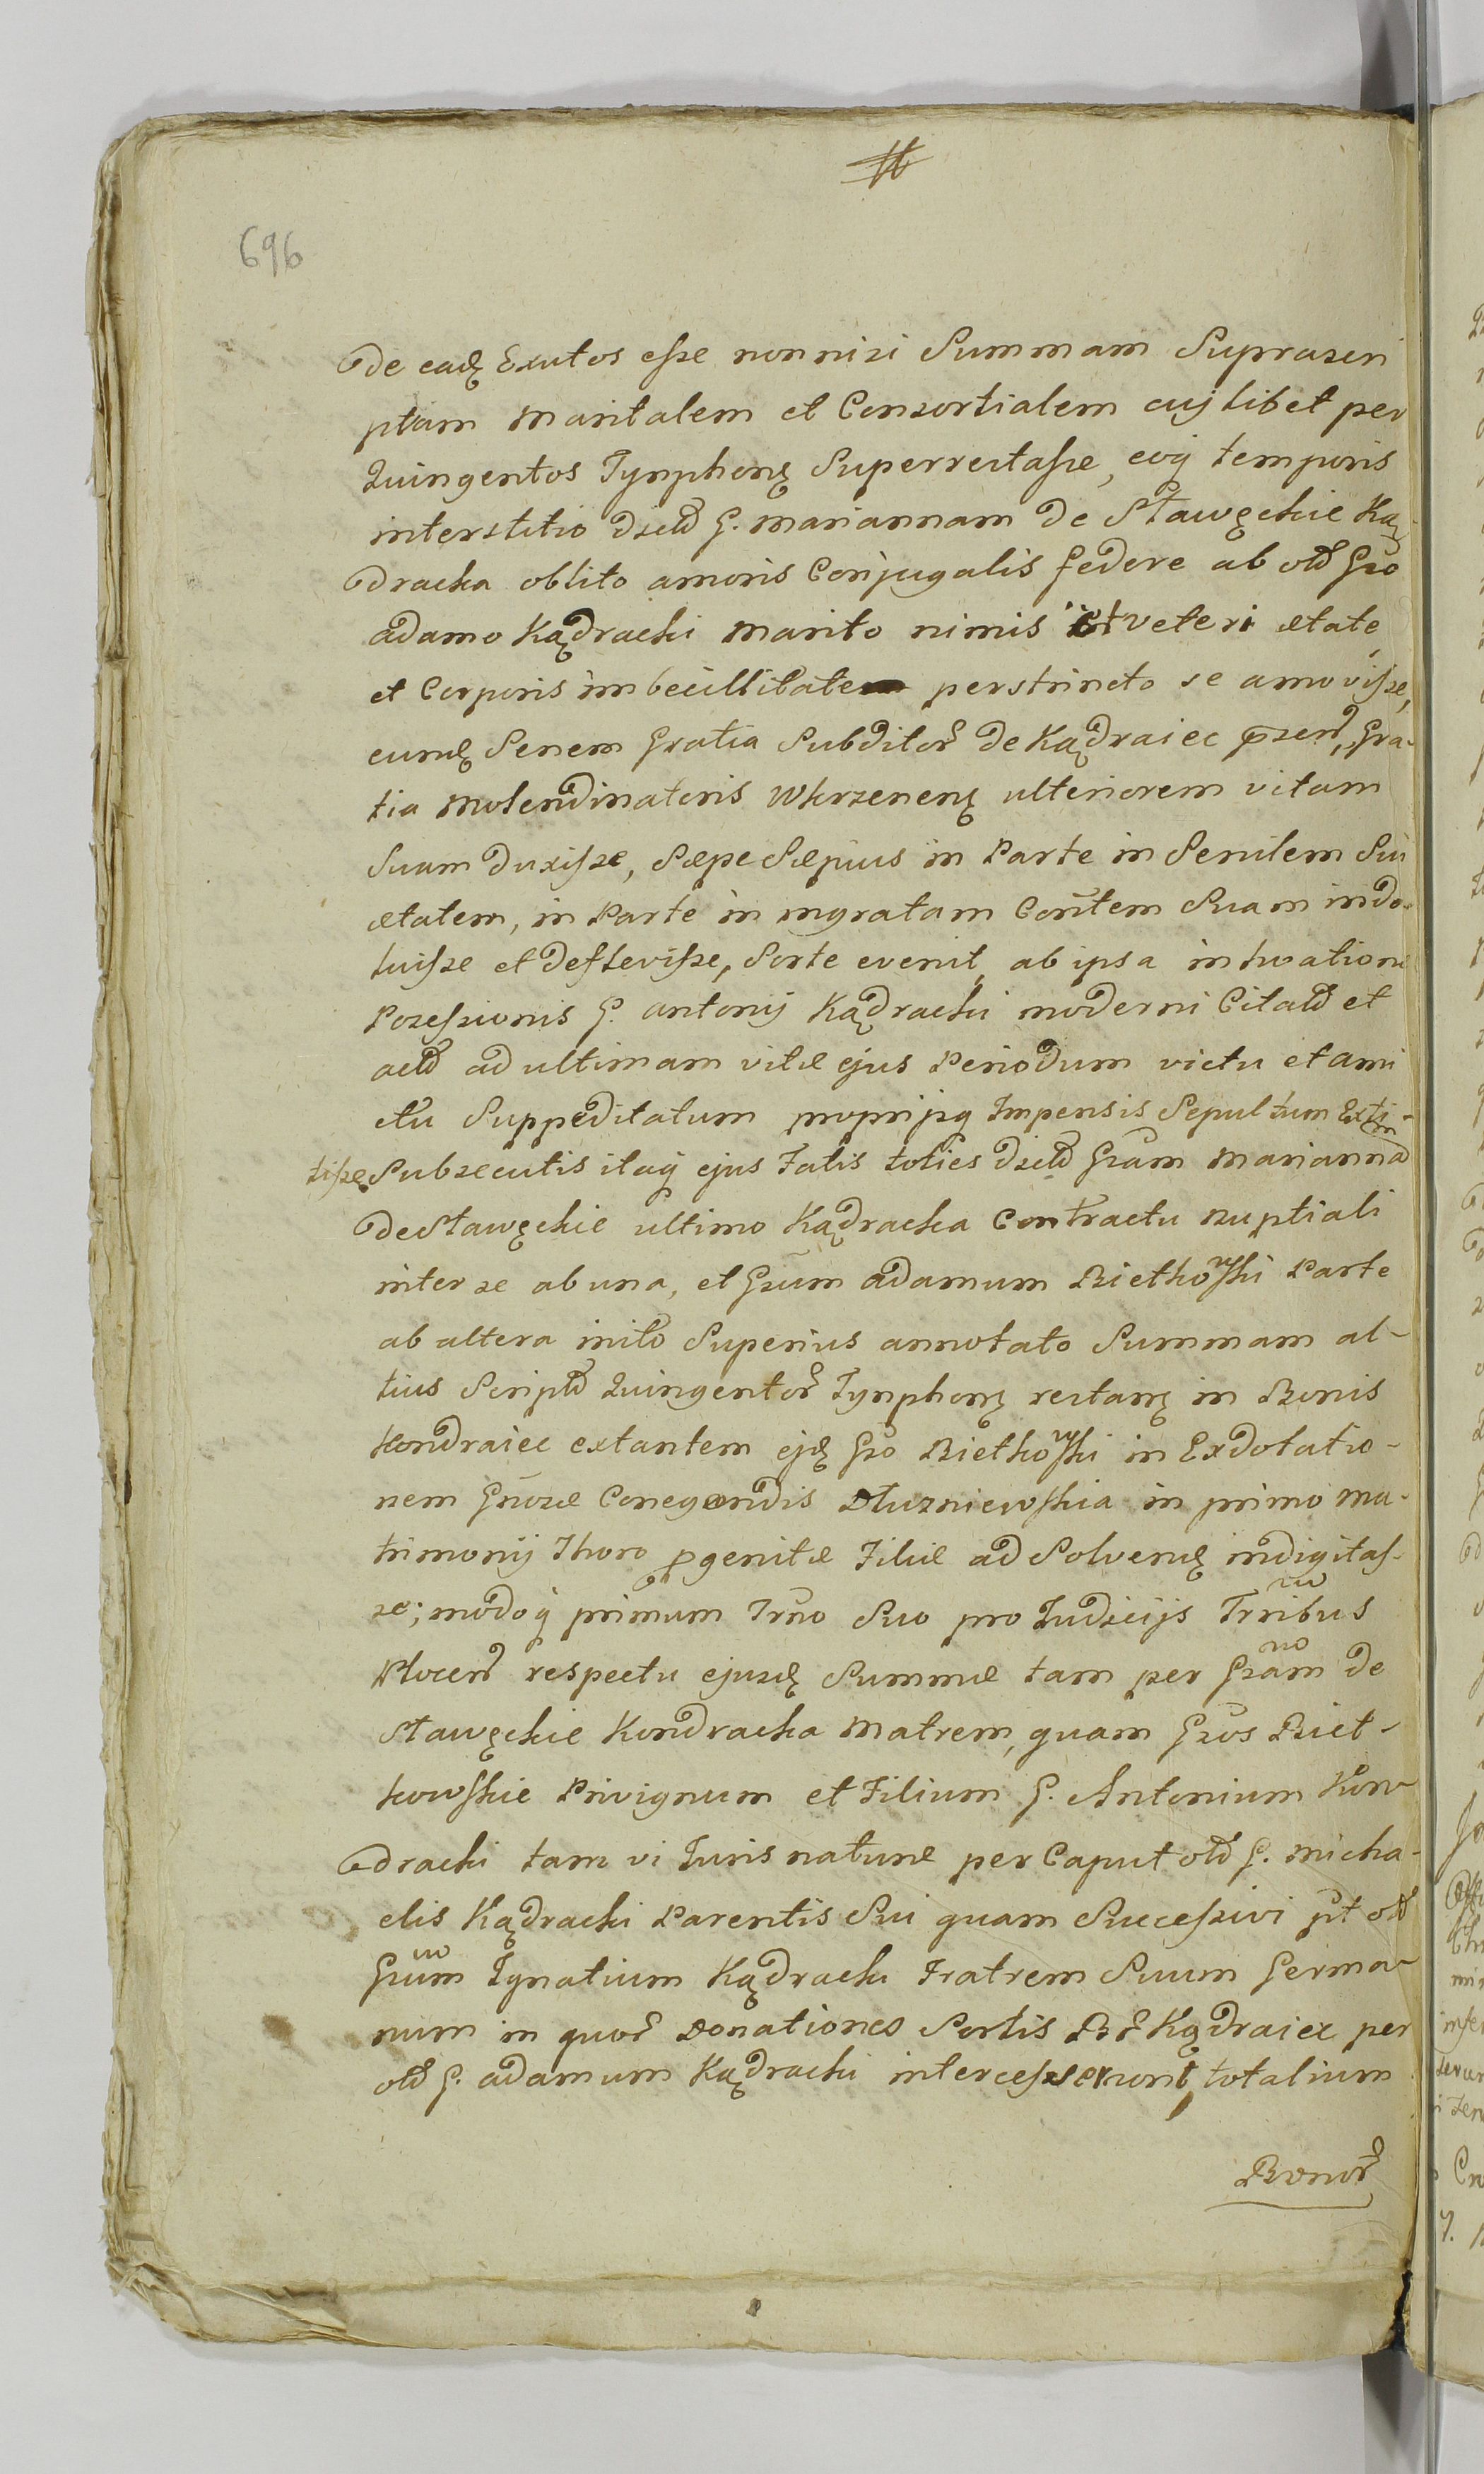 696
De eadę Exutos eſse non nisi Summam Suprascri
ptam Maritalem et Consortialem cujlibet per
Quingentos Tynphonę Superrestaſse, eoq temporis
interstitio dictd G. Mariannam de Stawęckie Ką
dracka oblito amoris Conjugalis federe ab old Gso
adamo Kądracki Marito nimis veteri ætate,
et Corporis imbecillitate perstricto se amoviſse,
eumę Senem Gratia Subditor de Kądraiec pzent, Gra-
tia Molendinatoris Wkrzenenę ulteriorem vitam
Suam duxiſse, Sæpe Sæpius in Parte in Senilem Sui
ætatem, in Parte in ingratam Contem Suam indo-
luiſse et defleviſse, Sorte evenit, ab ipsa intuatione
Poseſsionis G. antonij Kądracki moderni Citatd et
actd ad ultimam vitæ ejus Periodum victu et ami
ctu Suppeditatum proprijsq Impensis Sepultum Exti-
tiſse, Subsecutis itaq ejus Fatis toties dictd Gsam Marianna
de Stawęckie ultimo Kądracka Contractu nuptiali
inter se ab una, et Gsum adamum Rietkowſki Parte
ab altera inito Superius annotato Summam al-
tius Scriptd Quingentor Tynphonę restanę in Bonis
Kondraiec extantem ejdę Gso Rietkowſki in Exdotatio-
nem Gnosæ Conegondis Dłuzniewſkia in primo Ma-
trimonij Thoro pgenitæ Filiæ ad Solvendę indigitaſ-
se; modoq primum Trno Suo pro Judicijs Trnibus
Plocen respectu ejusdę Summæ tam per Gsam de
Stawęckie Kondracka Matrem, quam Gsos Riet-
kowſkie Privignum et Filium G. Antonium Kon-
dracki tam vi Juris naturæ per Caput old G. Micha-
elis Kądracki Parentis Sui quam Succeſsivi pt old
Gsum Ignatium Kądracki Fratrem Suum Germa-
num in quor Donationes Sortis Br Kądraiec per
old G. adamum Kądracki interceſserunt, totalium
Bonor